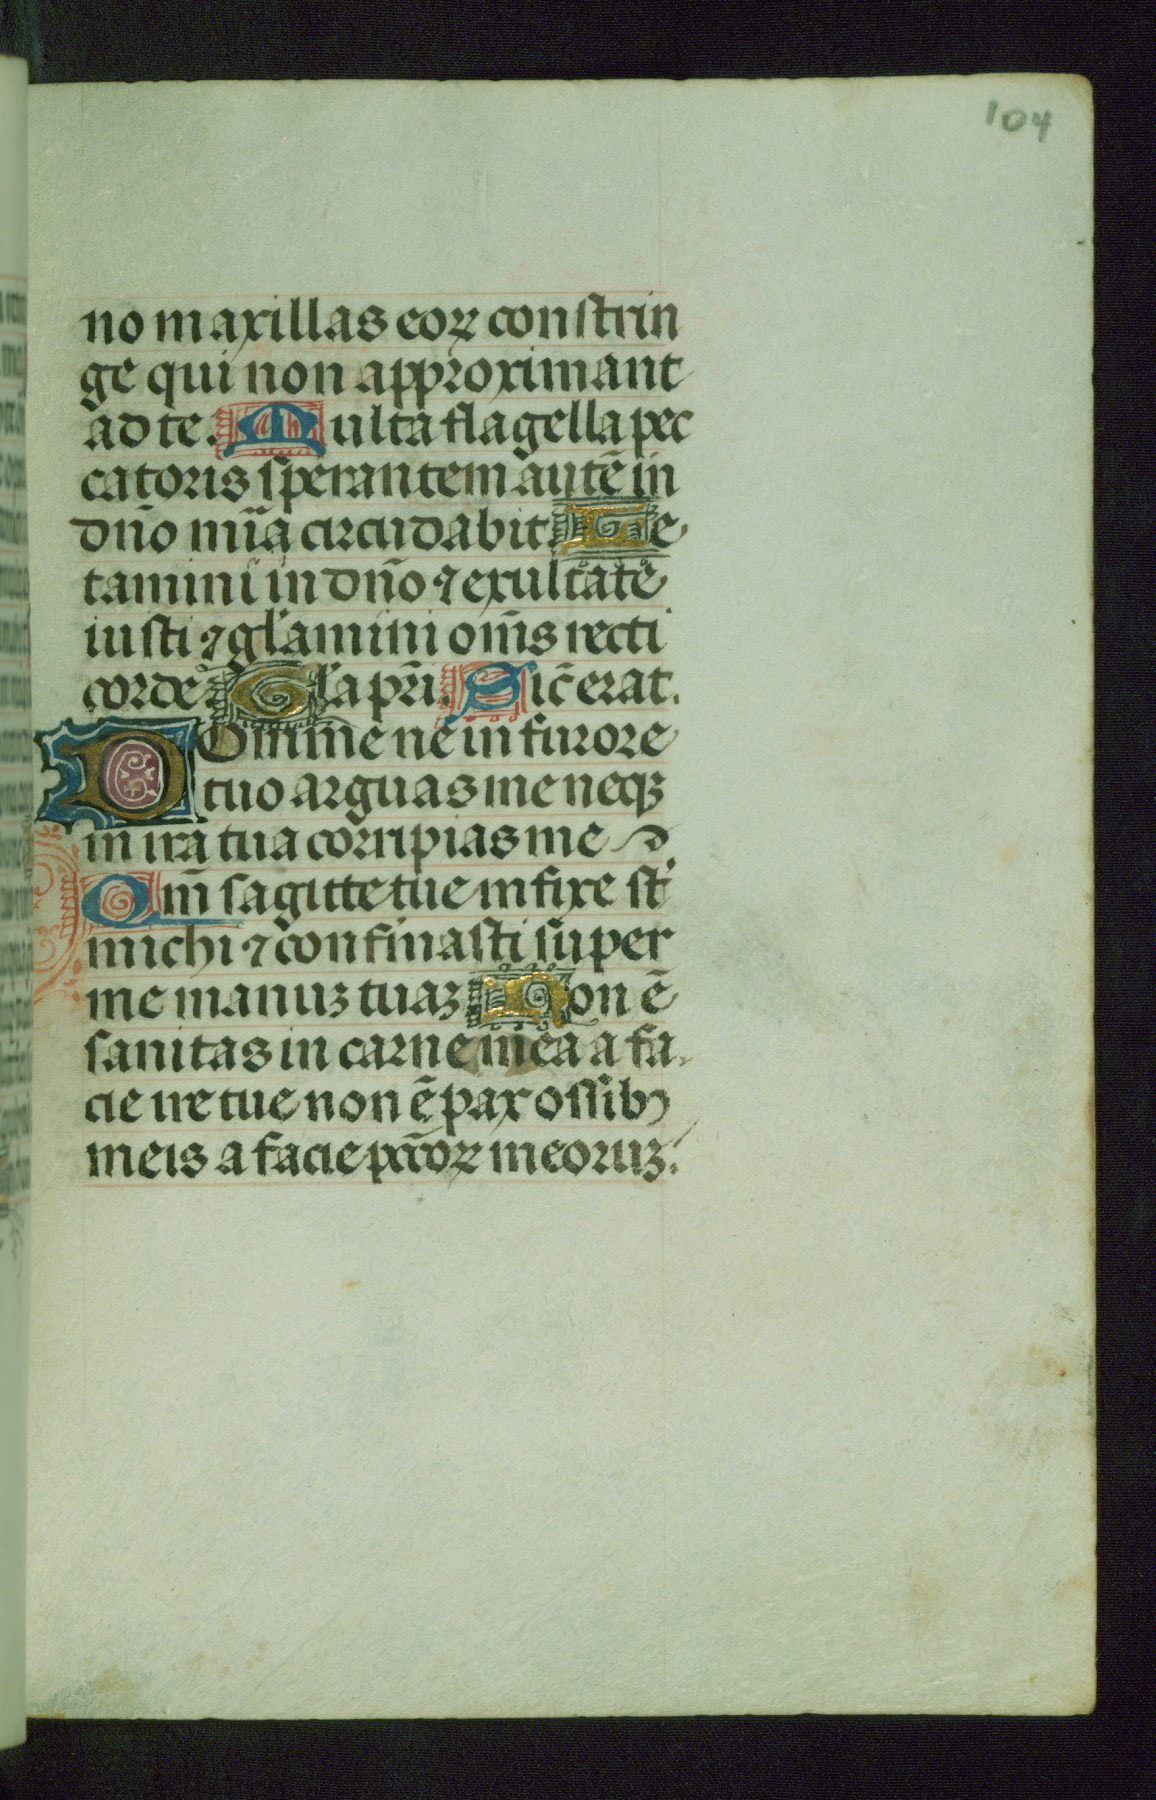 104
no maxillas eoꝝ constrin
ge qui non approximant
ad te. Multa flagella pec
catoris sperantem autē in
dn̄o mīa circūdabit. Le
tamini in dn̄o ⁊ exultate
iusti ⁊ gl'amini om̄s recti
corde. Gl'a pr̄i. Sic̄ erat.
Domine ne in furore
tuo arguas me neqꝫ
in ira tua corripias me
Qm̄ sagitte tue infixe st̄
michi ⁊ confirmasti super
me manuꝫ tuaꝫ Non ē
sanitas in carne mea a fa
cie ire tue non ē pax ossibꝰ
meis a facie pc̄coꝝ meoruꝫ.